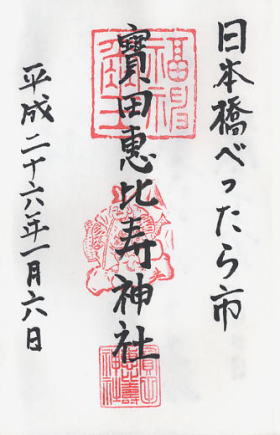 日本橋べったら市
寳田恵比寿神社
平成二十六年一月六日